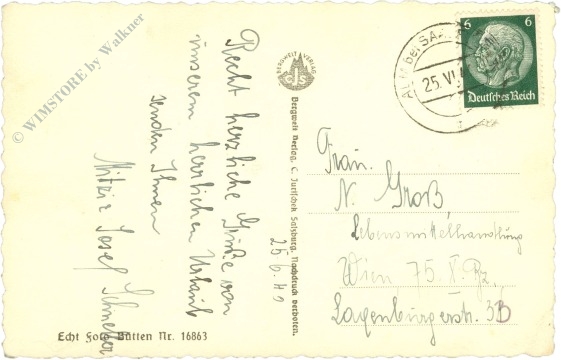 © WIMSTORE by Walkner
Recht herzliche Grüße von
unserem herrlichen Urlaub
senden Ihnen
Mitzi & Josef
BERGWELT VERLAG
CJS
Bergwelt Verlag, C. Jurischek Salzburg. Nachdruck verboten.
25.6.40
ALM bei SAA
25.VI.
6 6
Deutsches Reich
Frau
N. Groß
Lebensmittelhandlung
Wien 75. X. Bz.
Laxenburgerstr. 3B
Echt Foto Bütten Nr. 16863